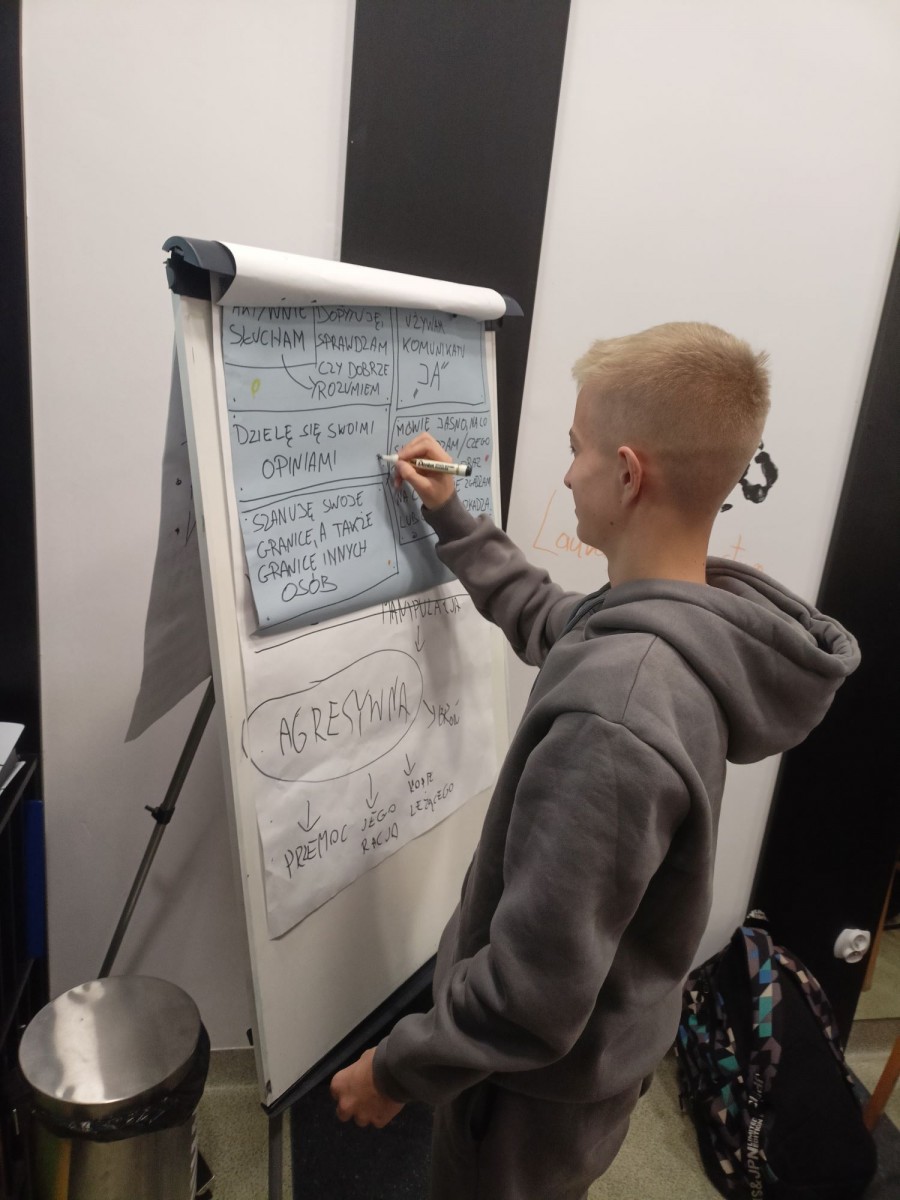 AKTYWNIE
SŁUCHAM
DOPYTUJĘ,
SPRAWDZAM
CZY DOBRZE
ROZUMIEM
UŻYWAM
KOMUNIKATU
"JA"
DZIELĘ SIĘ SWOIMI
OPINIAMI
MÓWIĘ JASNO, NA CO
/CZEGO
ORAZ
NA ZGADZAM
LUB
SZANUJĘ SWOJE
GRANICE, A TAKŻE
GRANICE INNYCH
OSÓB
MANIPULACJA
AGRESYWNA
BROŃ
PRZEMOC
JEGO
RACJA
KOPIE
LEŻĄCEGO